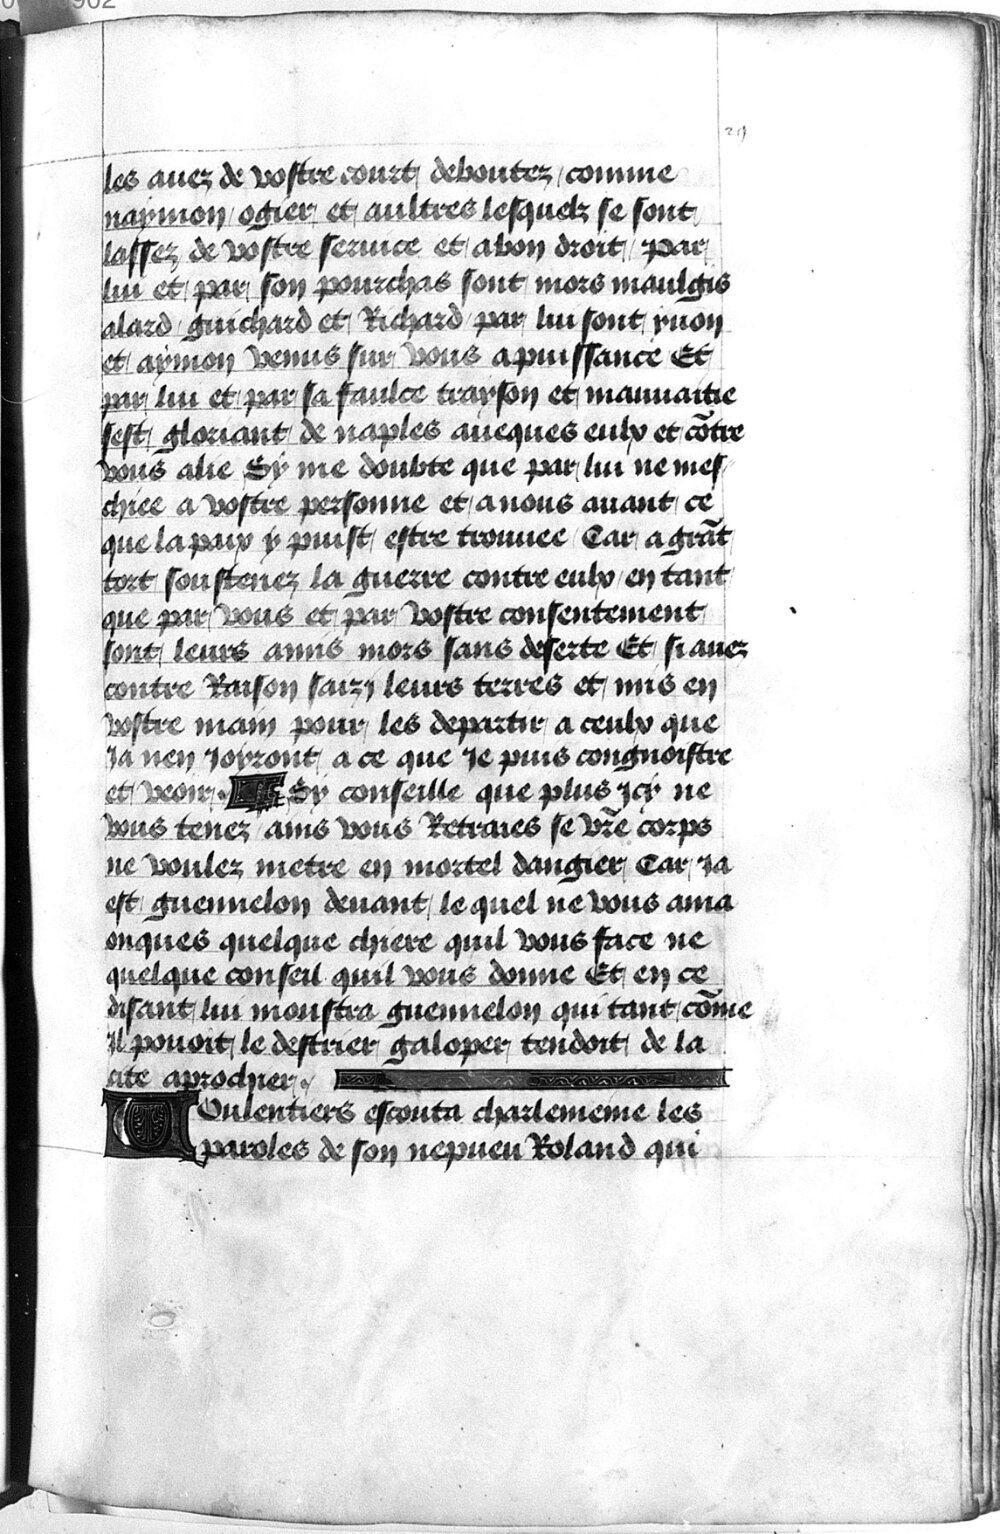 29
les auez de vostre court deboutez / comme
naymon / ogier et aultres lesquelz se sont
lassez de vostre seruice et a bon droit / par
lui et par son pourchas sont mors maulgis
alard / guichard et Richard / par lui sont yuon
et aymon venus sur vous a puissance Et
par lui et par sa faulce trayson et mauuaitie
sest gloriant de naples auecques eulx et cõtre
vous alie Sy me doubte que par lui ne mes/
chiee a vostre personne et a nous auant ce
que la paix y puist estre trouuee Car a grãt
tort soustenez la guerre contre eulx / en tant
que par vous et par vostre consentement
sont leurs amis mors sans deserte Et si auez
contre Raison saizy leurs terres et mis en
vostre main pour les departir a ceulx que
Ja nen Joyront a ce que Je puis congnoistre
et veoir. Sy conseille que plus Jcy ne
vous tenez ains vous Retraies se vr̃e corps
ne voulez metre en mortel dangier Car Ja
est guennelon deuant le quel ne vous ama
onques quelque chiere quil vous face ne
quelque conseil quil vous donne Et en ce
disant lui monstra guennelon qui tant cõme
Il pouoit le destrier galoper tendoit de la
cite aprochier.
Voulentiers escouta charlemeine les
paroles de son nepueu Roland qui